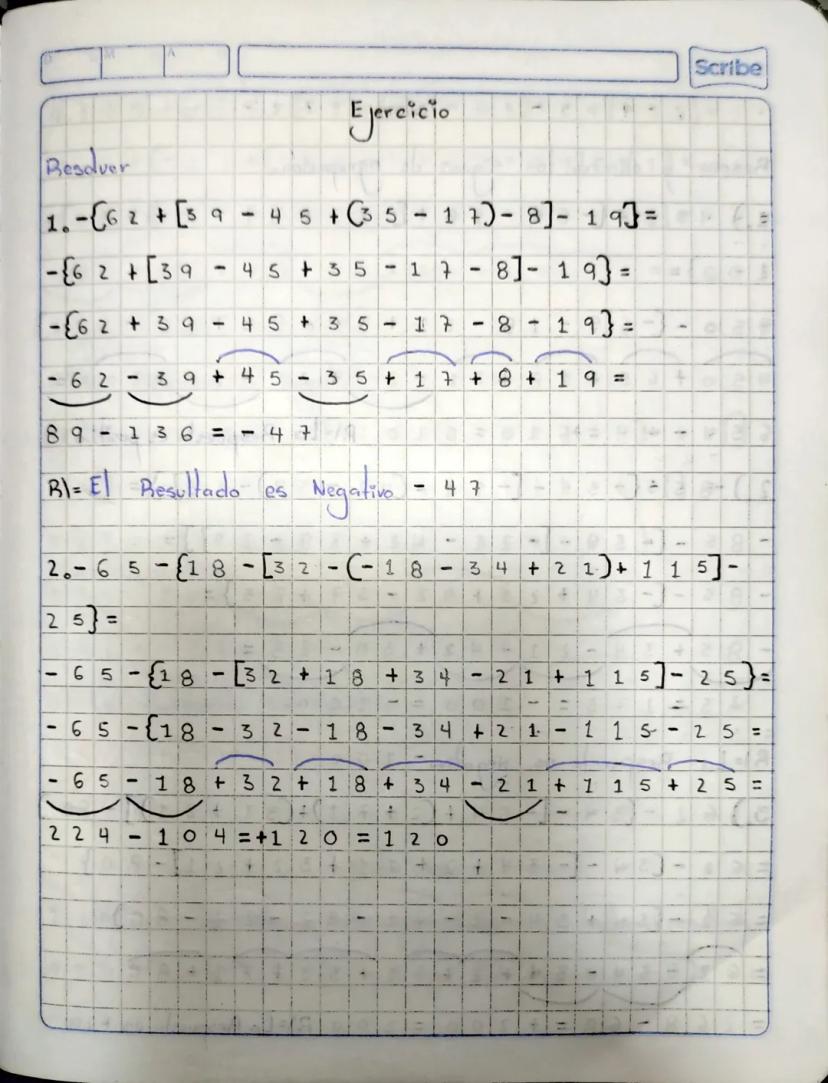 D M A
Scribe
Ejercicio
Resolver
1. -{62 + [39 - 45 + (35 - 17) - 8] - 19} =
-{62 + [39 - 45 + 35 - 17 - 8] - 19} =
-{62 + 39 - 45 + 35 - 17 - 8 - 19} =
- 62 - 39 + 45 - 35 + 17 + 8 + 19 =
89 - 136 = - 47
R\= El Resultado es Negativo - 47
2. - 65 - {18 - [32 - (- 18 - 34 + 21) + 115] -
25} =
- 65 - {18 - [32 + 18 + 34 - 21 + 115] - 25} =
- 65 - {18 - 32 - 18 - 34 + 21 - 115 - 25 =
- 65 - 18 + 32 + 18 + 34 - 21 + 115 + 25 =
224 - 104 = +120 = 120